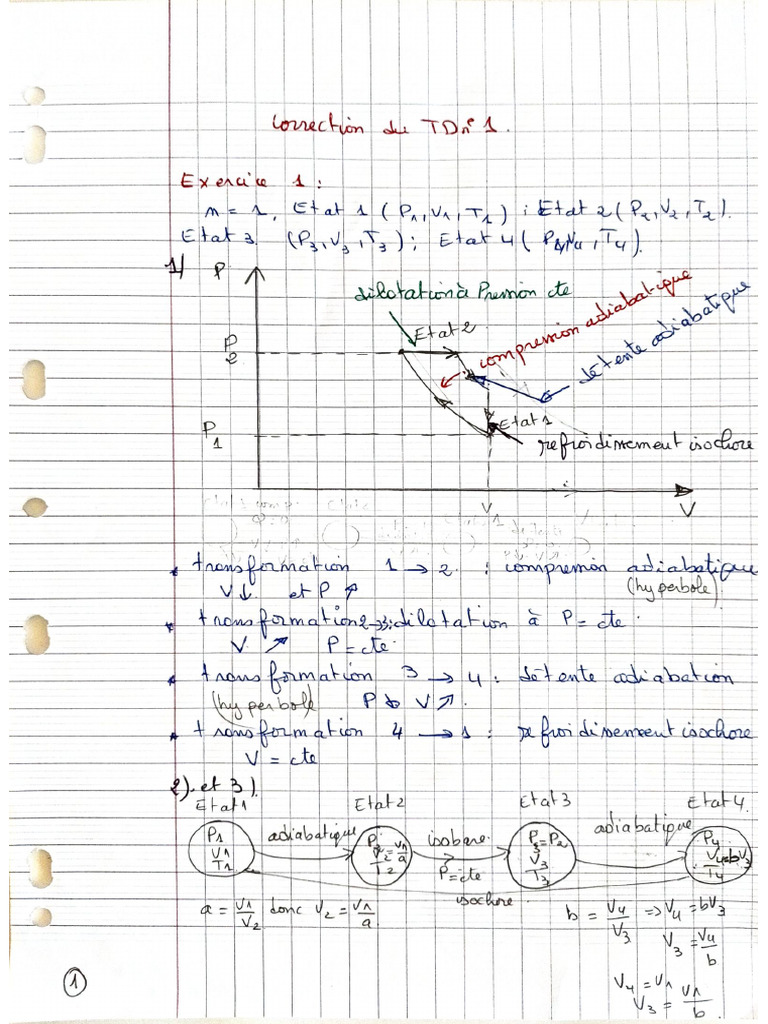 Correction du TD n°1.
Exercice 1 :
n = 1, Etat 1 (P1, V1, T1) ; Etat 2 (P2, V2, T2).
Etat 3 (P3, V3, T3) ; Etat 4 (P4, V4, T4).
1/
P
dilatation à Pression cte
compression adiabatique
détente adiabatique
Etat 2
P2
Etat 1
P1
refroidissement isochore
V1
V
* transformation 1 → 2 : compression adiabatique
V ↓ et P ↗ (hyperbole)
* transformation 2→3 : dilatation à P = cte.
V ↗ P = cte.
* transformation 3 → 4 : détente adiabation
(hyperbole) P ↘ V ↗.
* transformation 4 → 1 : refroidissement isochore
V = cte
2) et 3).
Etat 1 Etat 2 Etat 3 Etat 4.
adiabatique isobare adiabatique
P1 V1 T1
P2 V2 = V1/a T2
P=cte
P3=P2 V3 T3
P4 V4=bV3 T4
isochore
a = V1/V2 donc V2 = V1/a
b = V4/V3 => V4 = bV3
V3 = V4/b
V4 = V1
V3 = V1/b
1